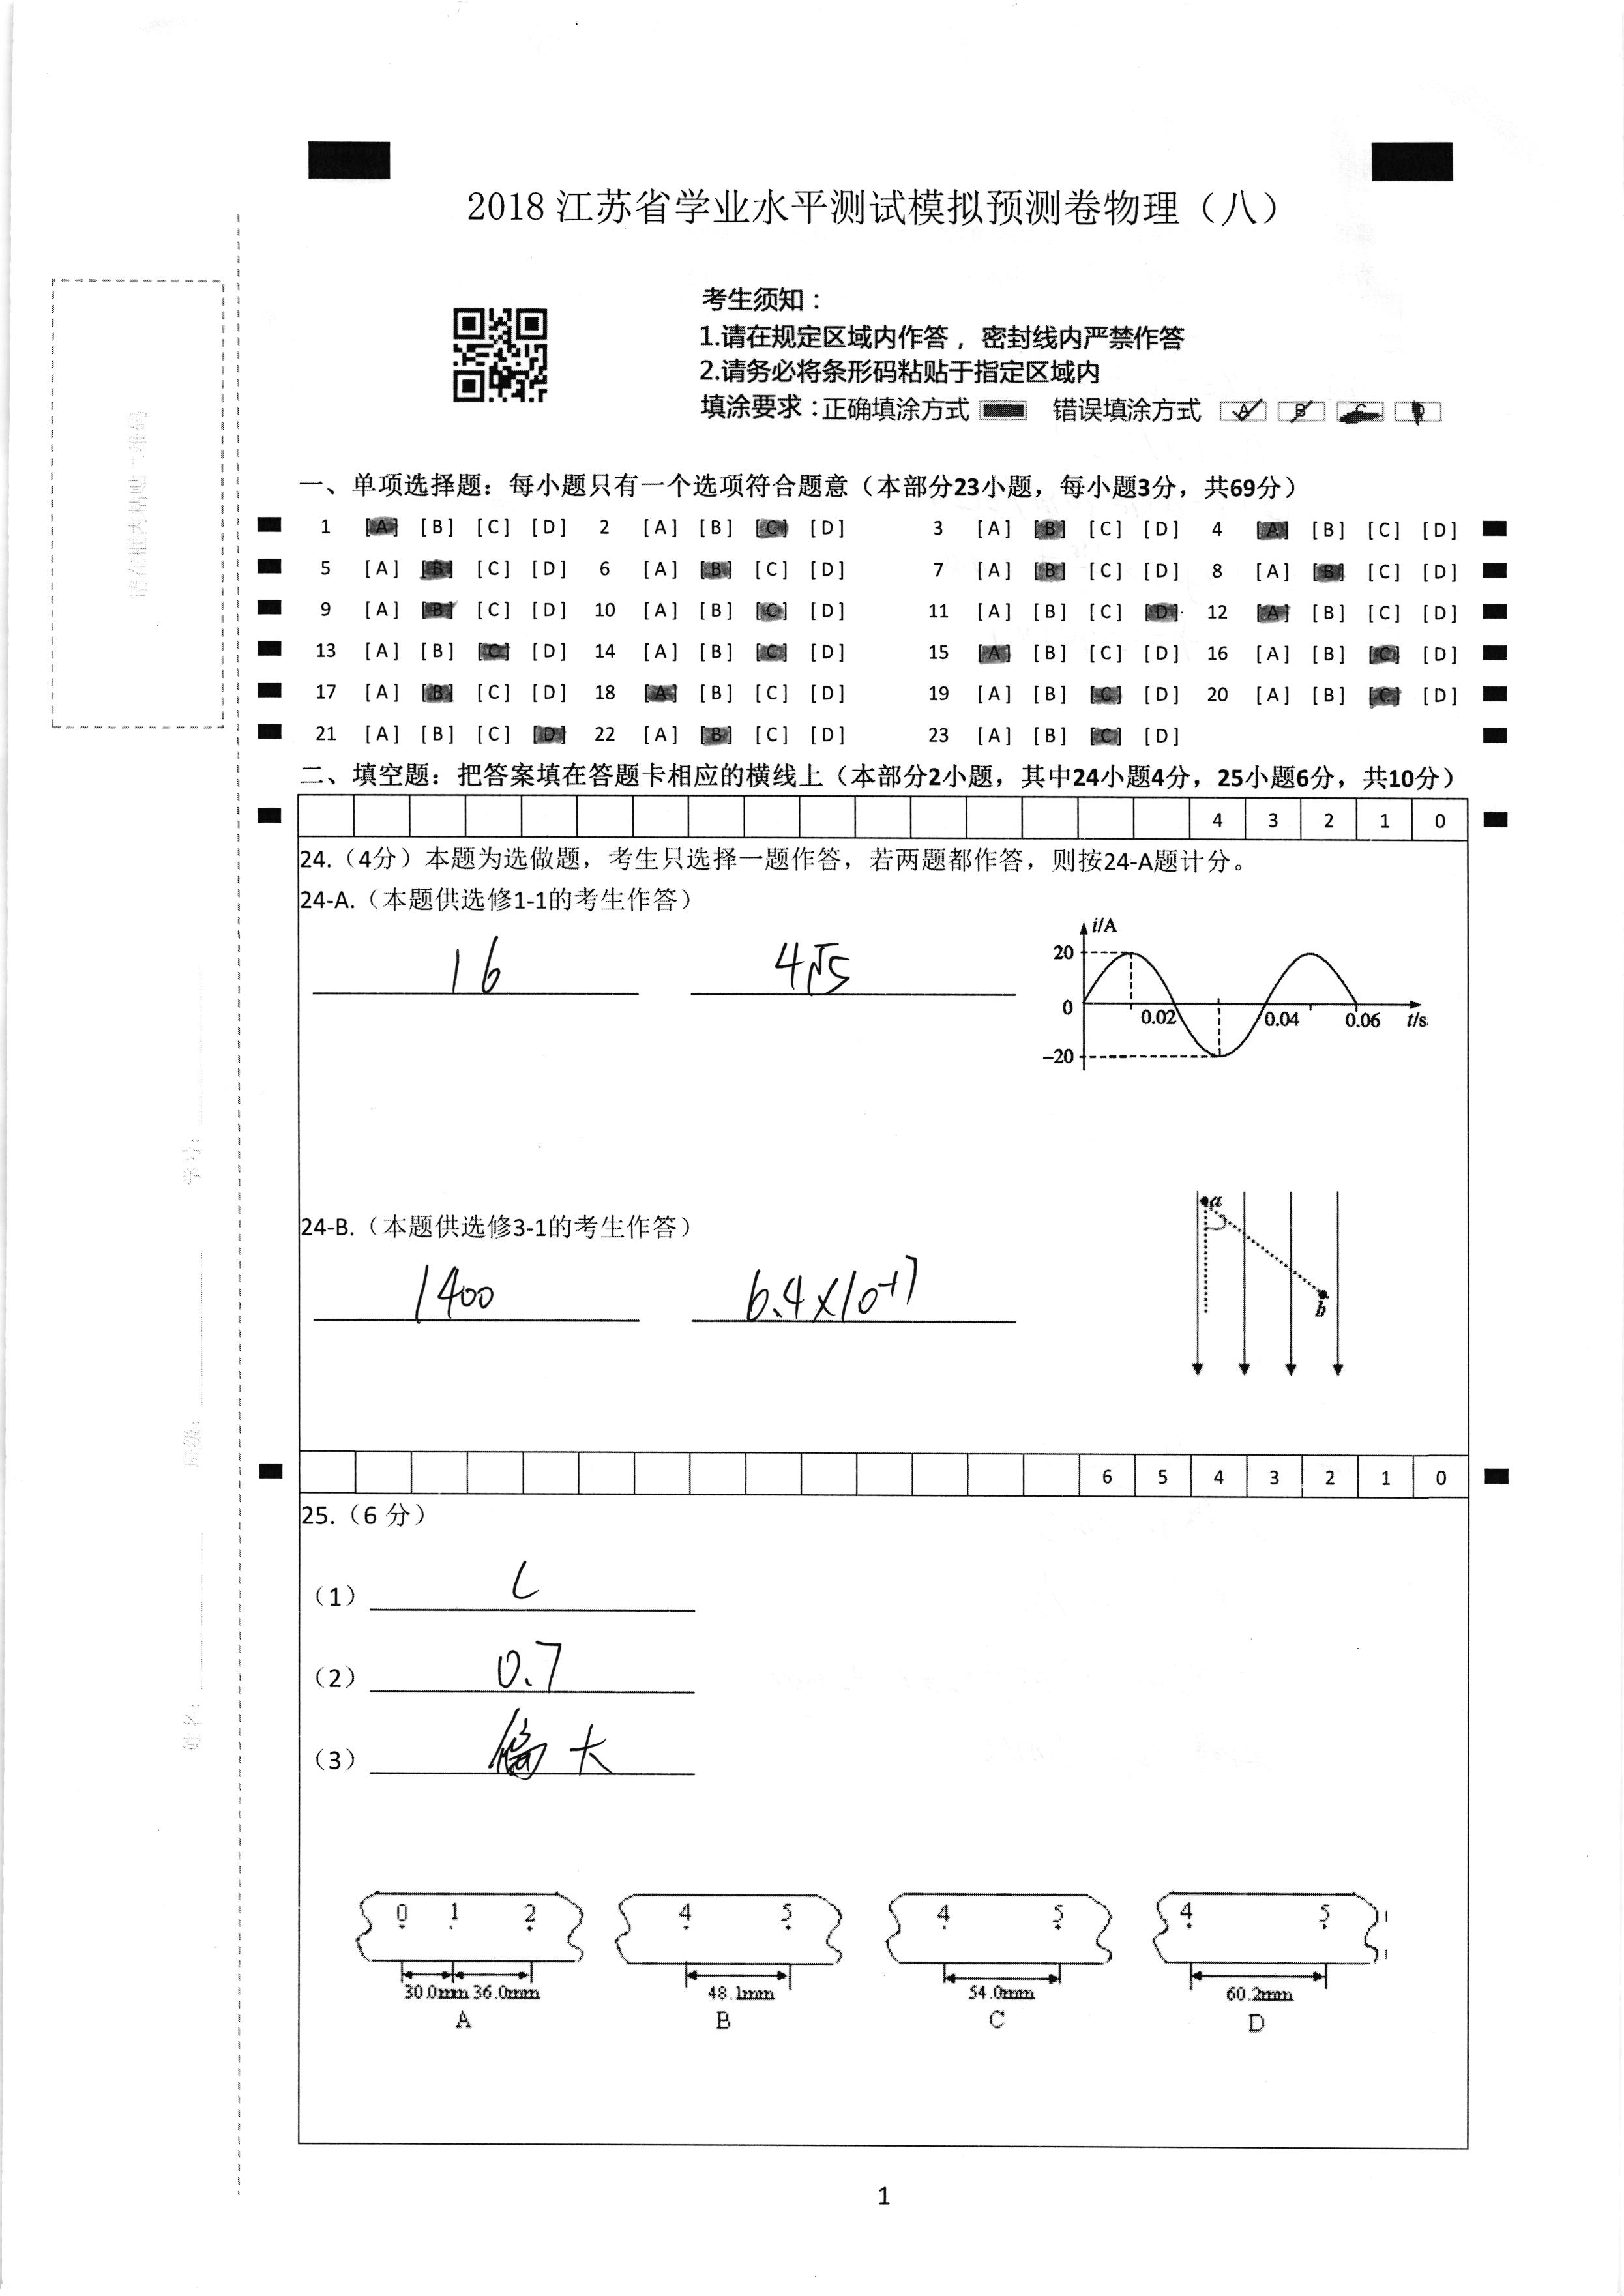 2018 江苏省学业水平测试模拟预测卷物理（八）
考生须知：
1.请在规定区域内作答，密封线内严禁作答
2.请务必将条形码粘贴于指定区域内
填涂要求：正确填涂方式 错误填涂方式 A B C D
请在框内粘贴二维码
学号：
班级：
姓名：
一、单项选择题：每小题只有一个选项符合题意（本部分23小题，每小题3分，共69分）
1 [A] [B] [C] [D] 2 [A] [B] [C] [D] 3 [A] [B] [C] [D] 4 [A] [B] [C] [D]
5 [A] [B] [C] [D] 6 [A] [B] [C] [D] 7 [A] [B] [C] [D] 8 [A] [B] [C] [D]
9 [A] [B] [C] [D] 10 [A] [B] [C] [D] 11 [A] [B] [C] [D] 12 [A] [B] [C] [D]
13 [A] [B] [C] [D] 14 [A] [B] [C] [D] 15 [A] [B] [C] [D] 16 [A] [B] [C] [D]
17 [A] [B] [C] [D] 18 [A] [B] [C] [D] 19 [A] [B] [C] [D] 20 [A] [B] [C] [D]
21 [A] [B] [C] [D] 22 [A] [B] [C] [D] 23 [A] [B] [C] [D]
二、填空题：把答案填在答题卡相应的横线上（本部分2小题，其中24小题4分，25小题6分，共10分）
4 3 2 1 0
24.（4分）本题为选做题，考生只选择一题作答，若两题都作答，则按24-A题计分。
24-A.（本题供选修1-1的考生作答）
16 4√5
i/A
20
0 0.02 0.04 0.06 t/s
-20
24-B.（本题供选修3-1的考生作答）
1400 6.4×10⁻¹⁷
a
b
6 5 4 3 2 1 0
25.（6 分）
（1） C
（2） 0.7
（3） 偏大
0 1 2 4 5 4 5 4 5
30.0mm 36.0mm 48.1mm 54.0mm 60.2mm
A B C D
1